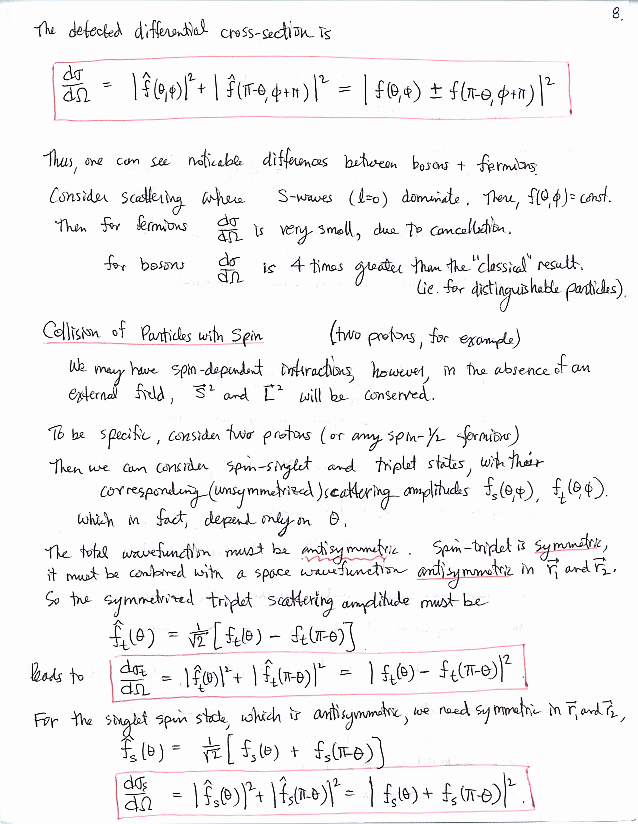 8.
The detected differential cross-section is
dσ/dΩ = |f̂(θ,φ)|² + |f̂(π-θ, φ+π)|² = |f(θ,φ) ± f(π-θ, φ+π)|²
Thus, one can see noticable differences between bosons + fermions
Consider scattering where S-waves (l=0) dominate. There, f(θ,φ)=const.
Then for fermions dσ/dΩ is very small, due to cancellation.
for bosons dσ/dΩ is 4 times greater than the "classical" result.
(ie. for distinguishable particles).
Collision of Particles with Spin (two protons, for example)
We may have spin-dependent interactions, however, in the absence of an
external field, S⃗² and L⃗² will be conserved.
To be specific, consider two protons (or any spin-½ fermions)
Then we can consider spin-singlet and triplet states, with their
corresponding (unsymmetrized) scattering amplitudes f_s(θ,φ), f_t(θ,φ).
which in fact, depend only on θ.
The total wavefunction must be antisymmetric. Spin-triplet is symmetric,
it must be combined with a space wavefunction antisymmetric in r⃗₁ and r⃗₂.
So the symmetrized triplet scattering amplitude must be
f̂_t(θ) = 1/√2 [f_t(θ) - f_t(π-θ)]
leads to dσ_t/dΩ = |f̂_t(θ)|² + |f̂_t(π-θ)|² = |f_t(θ) - f_t(π-θ)|².
For the singlet spin state, which is antisymmetric, we need symmetric in r⃗₁ and r⃗₂,
f̂_s(θ) = 1/√2 [f_s(θ) + f_s(π-θ)]
dσ_s/dΩ = |f̂_s(θ)|² + |f̂_s(π-θ)|² = |f_s(θ) + f_s(π-θ)|².